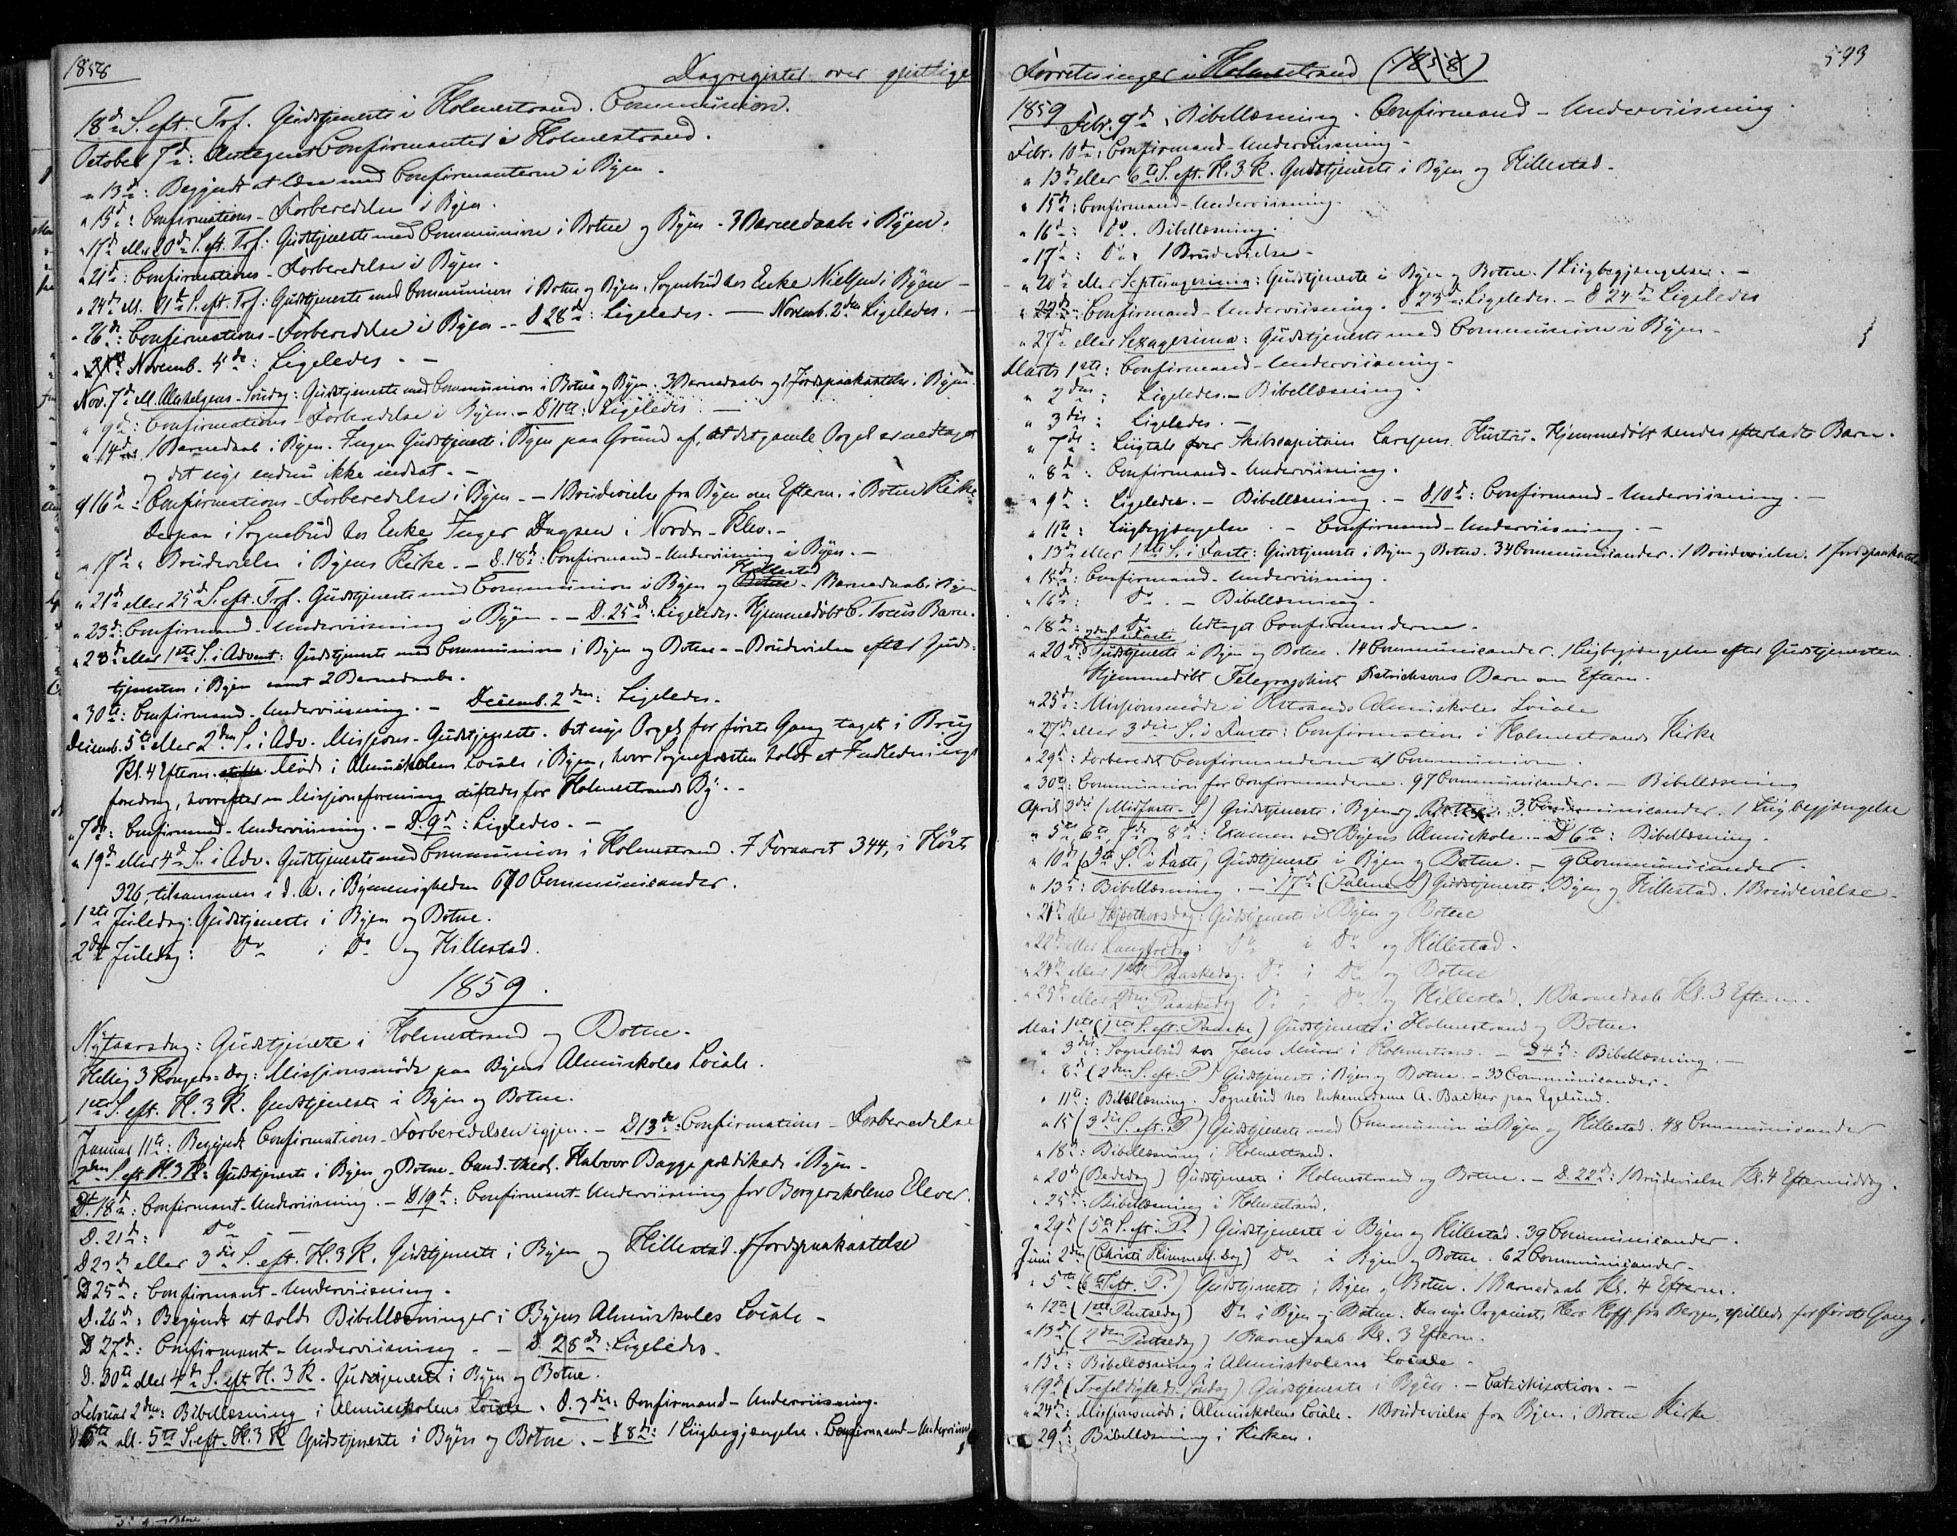 1858
Dagregister over geistlige
18de S. eft. Tref. Gudstjeneste i Holmestrand. Communion.
October 7de: Antegnet Confirmanter i Holmestrand.
" 13de: Begyndt at læse med Confirmanterne i Byen.
" 15de: Confirmations-Forberedelse i Byen.
" 17de eller 20de S. eft. Tref: Gudstjeneste med Communion i Botne og Byen. 3 Barnedaab i Byen.
" 21de: Confirmations-Forberedelse i Byen.
" 24de ell. 21de S. eft. Tref: Gudstjeneste med Communion i Botne og Byen. Sognebud hos Enke Nielsen i Byen
" 26de: Confirmations-Forberedelse i Byen - D. 28de: Ligeledes. - Novemb. 2den Ligeledes.
Novemb. 4de: Ligeledes.
Nov. 7de ell. Allehelgens-Søndag: Gudstjeneste med Communion i Botne og Byen. 3 Barnedaab og 1 Jordspaakastelse i Byen.
" 9de: Confirmations-Forberedelse i Byen. - D. 11te: Ligeledes.
" 14de 1 Barnedaab i Byen. Ingen Gudstjeneste i Byen paa Grund af, at det gamle Orgel er nedtaget
og det nye endnu ikke indsat.
" 16de: Confirmations-Forberedelse i Byen. - 1 Brudevielse fra Byen om Efterm. i Botne Kirke
Derpaa i Sognebud hos Enke Inger Dagsen i Nordre-Klev.
" 17de Brudevielse i Byens Kirke. - D. 18de: Confirmand-Underviisning i Byen.
" 21de eller 25de S. eft. Tref. Gudstjeneste med Communion i Byen og Botne Hillestad - Barnedaab i Byen
" 23de: Confirmand-Underviisning i Byen. - D. 25de: Ligeledes. Hjemmedøbt C. Barn.
" 28de eller 1ste S. i Advent: Gudstjeneste med Communion i Byen og Botne - Brudevielse efter Guds-
tjenesten i Byen samt 2 Barnedaab.
" 30te: Confirmand-Underviisning. - Decemb. 2den: Ligeledes.
Decemb. 5te eller 2den S. i Adv. Missions-Gudstjeneste. Det nye Orgel for første Gang taget i Brug
Kl. 4 Efterm. Møde i Almueskolens Locale i Byen, hvor Sognepræsten holdt et Indlednings
foredrag, hvorefter en Missionsforening stiftedes for Holmestrands By.
" 7de: Confirmand-Underviisning. - D. 9de: Ligeledes.
" 19de eller 4de S. i Adv. Gudstjeneste med Communion i Holmestrand. I Foraaret 344, i Høst
326, tilsammen i d. A. i Bymenigheden 670 Communicander.
1ste Juledag: Gudstjeneste i Byen og Botne.
2den Juledag: Do i Do og Hillestad.
1859.
Nytaarsdag: Gudstjeneste i Holmestrand og Botne.
Hellig 3 Kongers-Dag: Missionsmøde paa Byens Almueskoles Locale.
1ste S. eft. H. 3 K. Gudstjeneste i Byen og Botne.
Januar 11te: Begyndt Confirmations-Forberedelsen igjen. - D 13de: Confirmations-Forberedelse
2den S. eft. H. 3 K: Gudstjeneste i Byen og Botne. Cand. theol. Halvor Bagge prædikede i Byen.
D. 18de: Confirmant-Underviisning. - D. 19de: Confirmant-Underviisning for Borgerskolens Elever.
D. 21de: Do
D 23de eller 3die S. eft. H. 3 K. Gudstjeneste i Byen og Hillestad. 1 Jordspaakastelse
D 25de: Confirmant-Underviisning.
D. 26de: Begyndt at holde Bibellæsninger i Byens Almueskoles Locale
D 27de: Confirmant-Underviisning - D. 28de: Ligeledes.
D. 30te eller 4de S. eft. H. 3 K. Gudstjeneste i Byen og Botne.
Februar 2den: Bibellæsning i Almueskolens Locale. D. 3die: Confirmand-Underviisning.
6te ell. 5te S. eft. H. 3 K Gudstjeneste i Byen og Botne. - D 8de: 1 Liigbegjængelse. Confirmand-Underviisn
Forretninger i Holmestrand (1858)
593
1859 Febr. 9de. Bibellæsning. Confirmand-Underviisning
Febr. 10de: Confirmand-Underviisning.
" 13de eller 6te S. eft. H. 3 K. Gudstjeneste i Byen og Hillestad.
" 15de: Confirmand-Underviisning.
" 16de: Do. Bibellæsning.
" 17de: Do. 1 Brudevielse.
" 20de eller Septuagesima: Gudstjeneste i Byen og Botne. 1 Liigbegjængelse.
" 22de: Confirmand-Underviisning. D 23de: Ligeledes. - D 24de Ligeledes
" 27de eller Sexagesima: Gudstjeneste med Communion i Byen.
Marts 1ste: Confirmand-Underviisning.
" 2den: Ligeledes. Bibellæsning.
" 3die: Ligeledes.
" 7de: Liigtale over Skibscapitain Larsens Hustru. Hjemmedøbt hendes efterladte Barn.
" 8de: Confirmand-Underviisning.
" 9de: Ligeledes. - Bibellæsning. - D 10de: Confirmand-Underviisning.
" 11te: Liigbegjængelse. - Confirmand-Underviisning.
" 13de eller 1ste S. i Faste: Gudstjeneste i Byen og Botne. 34 Communicander. 1 Brudevielse. 1 Jordspaakastelse
" 15de: Confirmand-Underviisning.
" 16de: Do. - Bibellæsning.
" 18de: Do. Udtaget Confirmanderne.
" 20de: 2den S. i Faste Gudstjeneste i Byen og Botne. 14 Communicander. 1 Liigbegjængelse efter Gudstjenesten.
Hjemmedøbt Telegraphist Dietrichsons Barn om Efterm.
" 25de: Missionsmøde i Almueskoles Locale
" 27de eller 3die S. i Faste: Confirmation i Holmestrands Kirke
" 29de: Forberedt Confirmanderne til Communion.
" 30te: Communion for Confirmanderne. 97 Communicander. - Bibellæsning
April 3die (Midfaste-S) Gudstjeneste i Byen og Botne. 3 Communicander. 1 Liigbegjængelse
" 5te, 6te, 7de, 8de: Examen ved Byens Almueskole. - D 6te: Bibellæsning
" 10de (5te S. i Faste) Gudstjeneste i Byen og Botne. - 9 Communicander.
" 13de: Bibellæsning. - 17de (Palme S) Gudstjeneste i Byen og Hillestad. 1 Brudevielse.
" 21de eller Skjærthorsdag: Gudstjeneste i Byen og Botne
" 22de eller Langfredag: Do i Do og Hillestad.
" 24de eller 1ste Paaskedag. Do i Do og Botne
" 25de eller 2den Paaskedag Do i Do og Hillestad. 1 Barnedaab Kl. 3 Efterm.
Mai 1ste (1ste S. eft. Paaske) Gudstjeneste i Holmestrand og Botne.
" 3die: Sognebud hos Jens Murer i Holmestrand. - D 4de: Bibellæsning.
" 8de (2den S. eft. P) Gudstjeneste i Byen og Botne. - 33 Communicander.
" 11te: Bibellæsning. Sognebud hos Enkemadame A. Backer paa Egelund.
" 15 (3die S. eft. P) Gudstjeneste med Communion i Byen og Hillestad. 48 Communicander
" 18de: Bibellæsning i Holmestrand.
" 20de (Bededag) Gudstjeneste i Holmestrand og Botne. - D. 22de: 1 Brudevielse Kl. 4 Eftermiddag.
" 25de: Bibellæsning i Holmestrand.
" 29de (5te S. eft. P.) Gudstjeneste i Byen og Hillestad. 39 Communicander.
Juni 2den (Christi Himmelf. Dag) Do i Byen og Botne. 62 Communicander.
" 5te (6te S. eft. P.) Gudstjeneste i Byen og Botne. 1 Barnedaab Kl. 4 Efterm.
" 12te (1ste Pintsedag) Do i Byen og Botne. Den nye Organist, Herr Hoff fra Bergen, spillede for første Gang.
" 13de (2den Pintsedag) 1 Barnedaab Kl. 3 Efterm.
" 15de: Bibellæsning i Almueskolens Locale.
" 19de (Trefoldigheds-Søndag) Gudstjeneste i Byen. - Catechisation.
" 24de: Missionsmøde i Almueskolens Locale. 1 Brudevielse fra Byen i Botne Kirke
" 29de: Bibellæsning i Kirken.